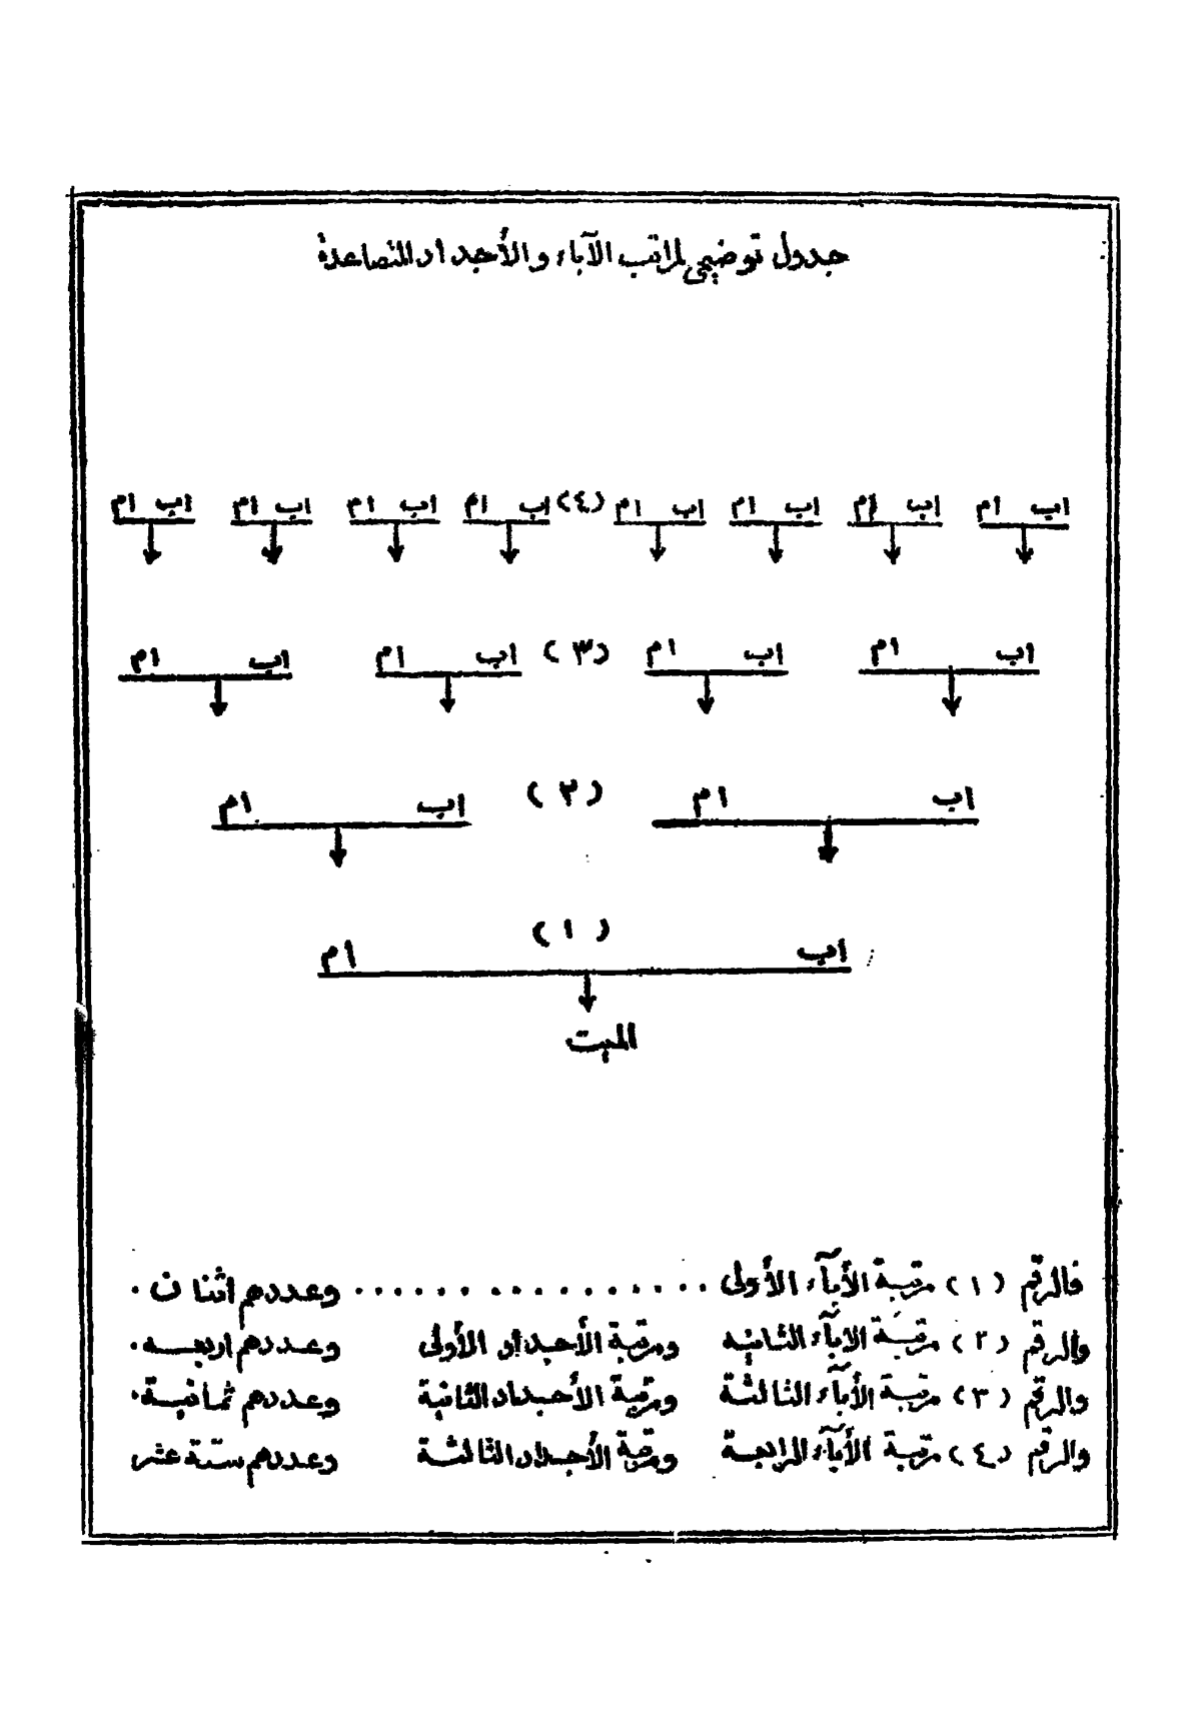 جدول توضيحي لمراتب الآباء والأجداد المتصاعدة
اب ام اب ام اب ام اب ام (٤) اب ام اب ام اب ام اب ام
اب ام اب ام (٣) اب ام اب ام
اب ام (٢) اب ام
اب (١) ام
الميت
فالرقم (١) مرتبة الأباء الأولى . . . . . . . . . . . . . . . . وعددهم اثنان .
والرقم (٢) مرتبة الاباء الثانيه ومرتبة الأجداد الأولى وعددهم اربعـــه .
والرقم (٣) مرتبة الأباء الثالثة ومرتبة الأجداد الثانية وعددهم ثمانية .
والرقم (٤) مرتبة الأباء الرابعة ومرتبة الأجداد الثالثة وعددهم ستة عشر